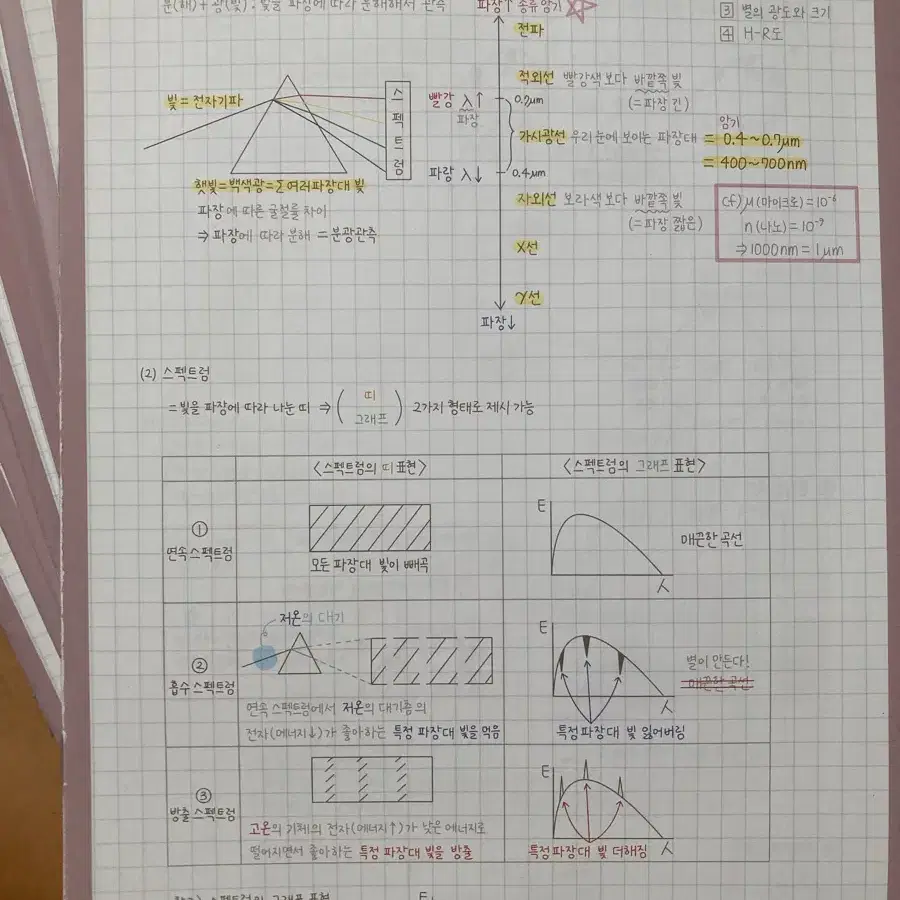 분(해) + 광(빛) : 빛을 파장에 따라 분해해서 관측
파장↑ 종류 암기
③ 별의 광도와 크기
④ H-R도
전파
적외선 빨강색보다 바깥쪽 빛
(= 파장 긴)
빛 = 전자기파
스펙트럼
빨강 λ↑
파장
0.7μm
가시광선 우리 눈에 보이는 파장대
암기
= 0.4~0.7μm
= 400~700nm
파랑 λ↓
0.4μm
햇빛 = 백색광 = Σ 여러 파장대 빛
파장에 따른 굴절률 차이
⇒ 파장에 따라 분해 = 분광관측
자외선 보라색보다 바깥쪽 빛
(= 파장 짧은)
X선
γ선
파장↓
cf) μ(마이크로) = 10⁻⁶
n(나노) = 10⁻⁹
⇒ 1000nm = 1μm
(2) 스펙트럼
= 빛을 파장에 따라 나눈 띠 ⇒ ( 띠
그래프 ) 2가지 형태로 제시 가능
<스펙트럼의 띠 표현>
<스펙트럼의 그래프 표현>
①
연속 스펙트럼
모든 파장대 빛이 빼곡
E
매끈한 곡선
λ
②
흡수 스펙트럼
저온의 대기
연속 스펙트럼에서 저온의 대기층의
전자(에너지↓)가 좋아하는 특정 파장대 빛을 먹음
E
별이 만든다!
매끈한 곡선
λ
특정 파장대 빛 잃어버림
③
방출 스펙트럼
고온의 기체의 전자(에너지↑)가 낮은 에너지로
떨어지면서 좋아하는 특정 파장대 빛을 방출
E
λ
특정 파장대 빛 더해짐